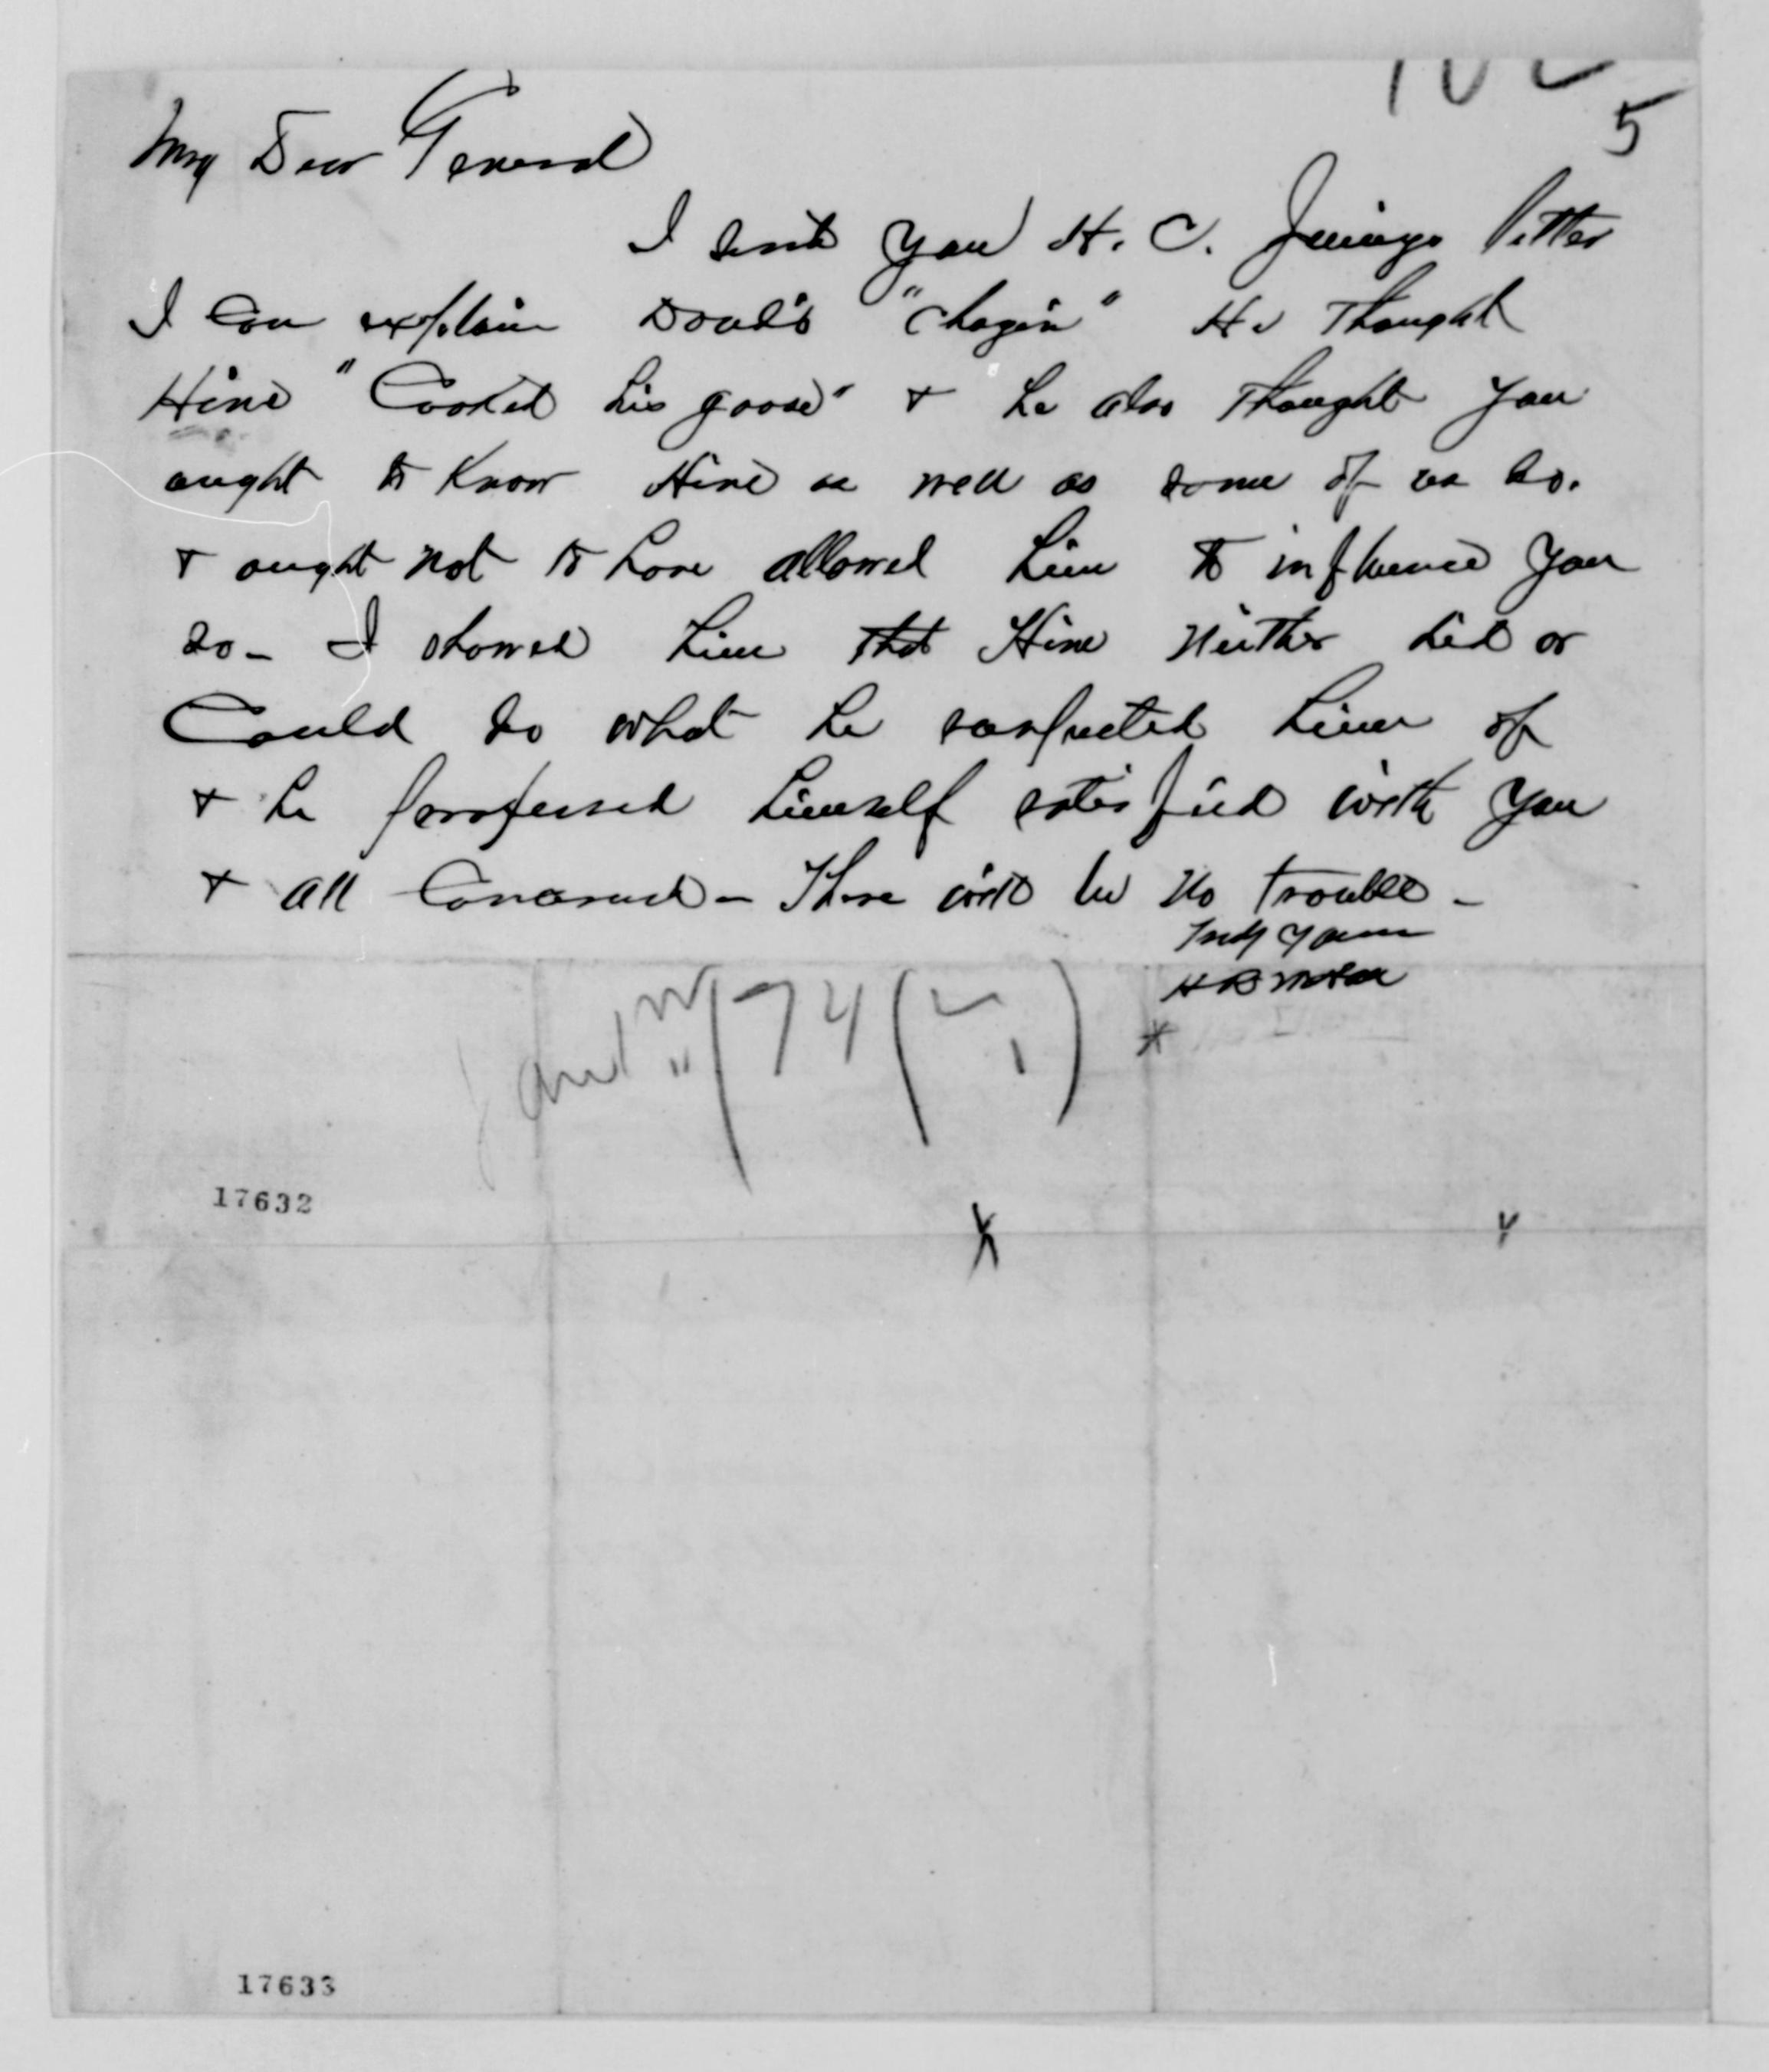 5
My Dear General
I send you H. C. Jenings letter
I can explain Doud's "Chagin" He thought
Hine "Cooked his goose" + he also thought you
ought to know Hine as well as some of us do.
+ ought not to have allowed him to influence you
so - I showed him that Hine neither did or
Could do what he suspected him of
+ he professed himself satisfied with you
+ all Concerned - There will be no trouble -
Truly Yours
17632
17633